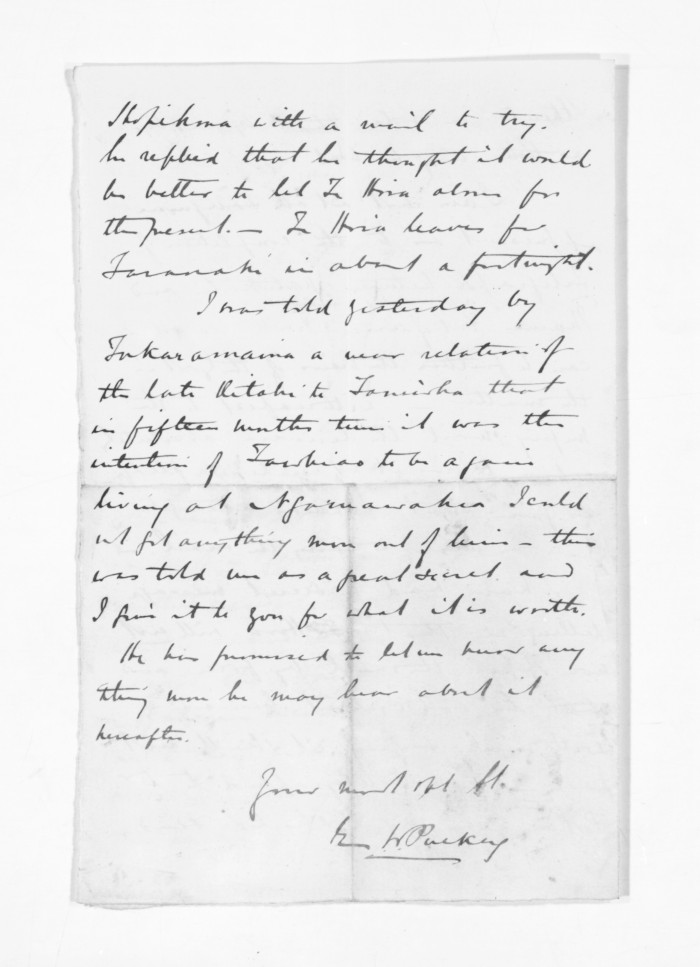 with a mail to try.
he replied that he thought it would
be better to let Te Hira alone for
the present. — Te Hira leaves for
Taranaki in about a fortnight.
I was told yesterday by
Tukaramaina a near relation of
the late Ritahi te Taniwha that
in fifteen months time it was the
intention of Tawhiao to be again
living at Ngaruawahia I could
not get anything more out of him – this
was told me as a great secret and
I give it to you for what it is worth.
He has promised to let me know any
thing more he may hear about it
hereafter.
Your most obt St.
W. Puckey